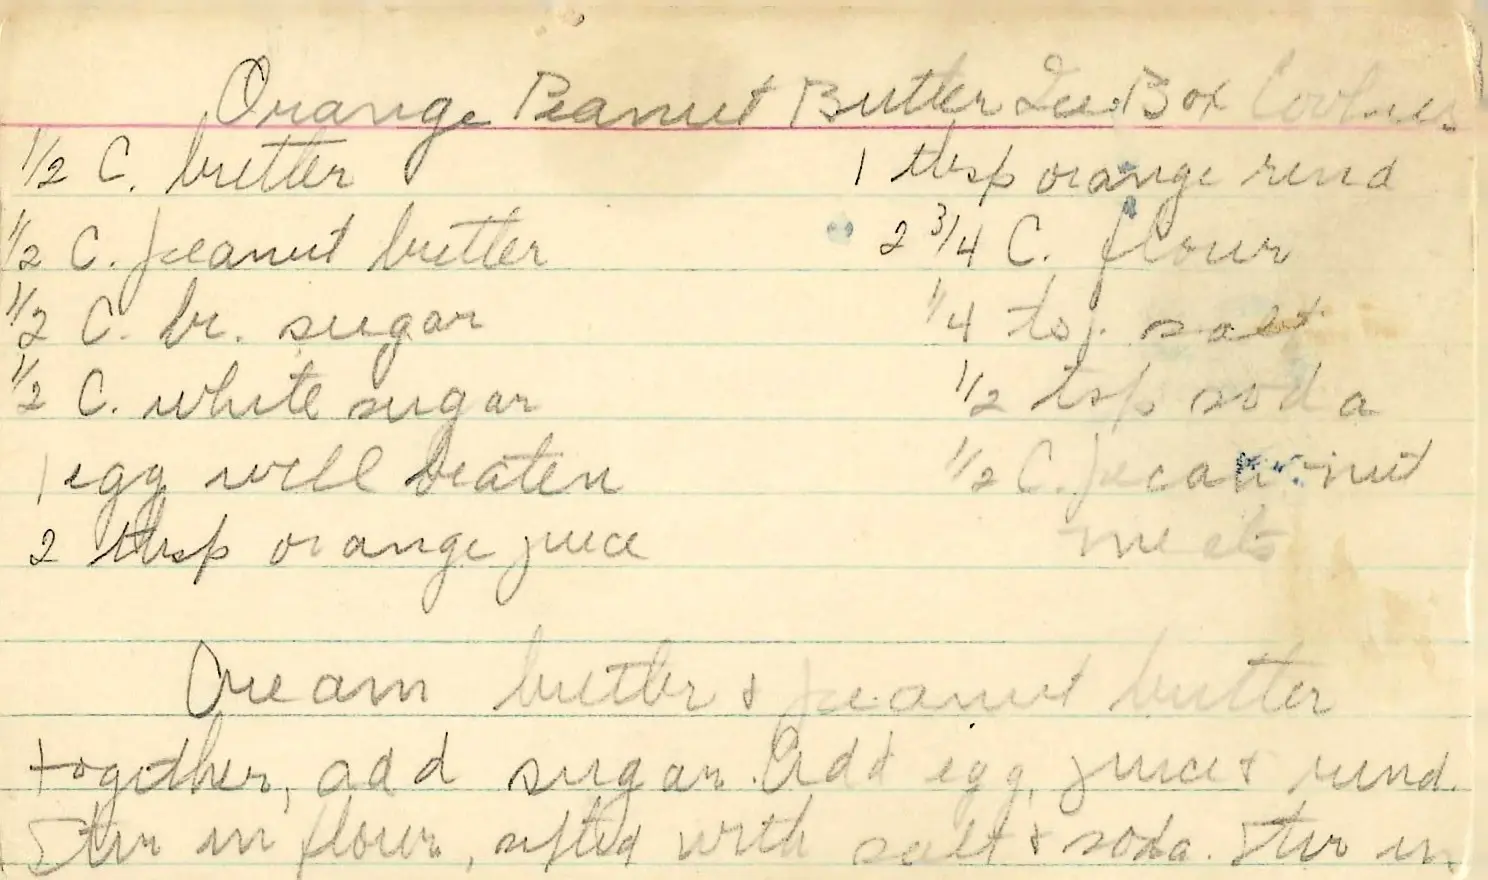 Orange Peanut Butter Ice Box Cookies
1/2 C. butter
1/2 C. peanut butter
1/2 C. br. sugar
1/2 C. white sugar
1 egg well beaten
2 tbsp orange juice
1 tbsp orange rind
2 3/4 C. flour
1/4 tsp. salt
1/2 tsp soda
1/2 C. pecan nut
meats
Cream butter & peanut butter
together, add sugar. Add egg, juice & rind.
Stir in flour, sifted with salt & soda. Stir in